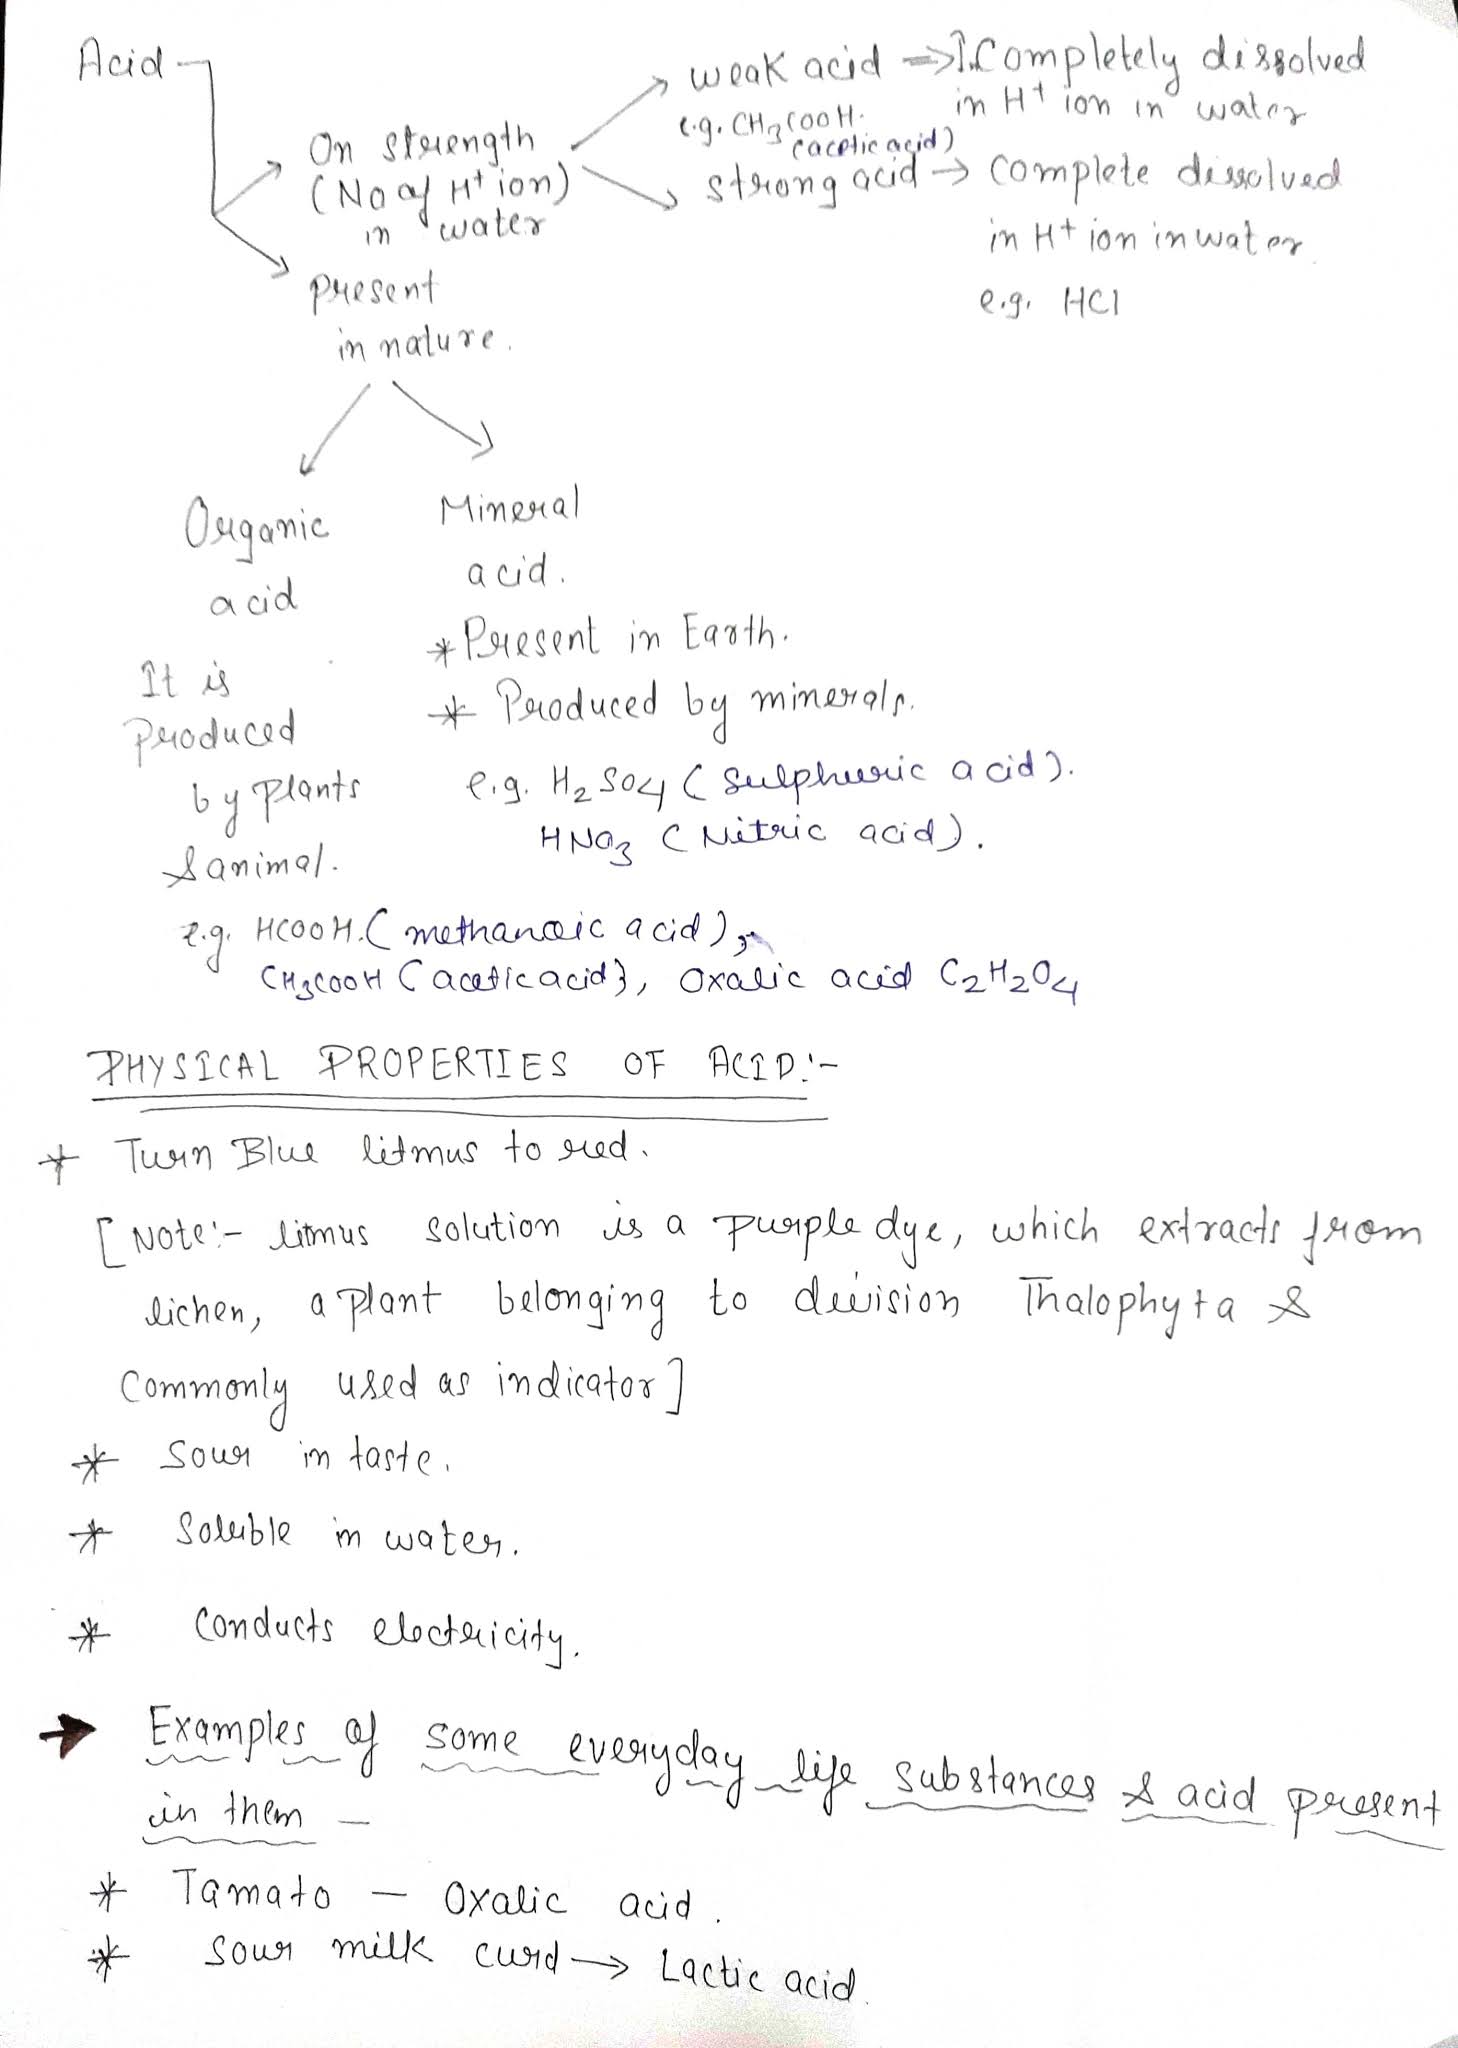 Acid
weak acid => 1. Completely dissolved
in H+ ion in water
e.g. CH3COOH.
(acetic acid)
On strength
(No of H+ ion)
in water
strong acid → complete dissolved
in H+ ion in water
e.g. HCl
present
in nature.
Organic
acid
It is
produced
by plants
& animal.
Mineral
acid.
* Present in Earth.
* Produced by minerals.
e.g. H2SO4 (Sulphuric acid).
HNO3 (Nitric acid).
e.g. HCOOH. (methanoic acid),
CH3COOH (acetic acid}, Oxalic acid C2H2O4
PHYSICAL PROPERTIES OF ACID:-
* Turn Blue litmus to red.
[Note:- litmus solution is a purple dye, which extracts from
lichen, a plant belonging to division Thalophyta &
Commonly used as indicator]
* Sour in taste.
* Soluble in water.
* Conducts electricity.
→ Examples of some everyday life substances & acid present
in them —
* Tamato — Oxalic acid.
* Sour milk curd → Lactic acid.